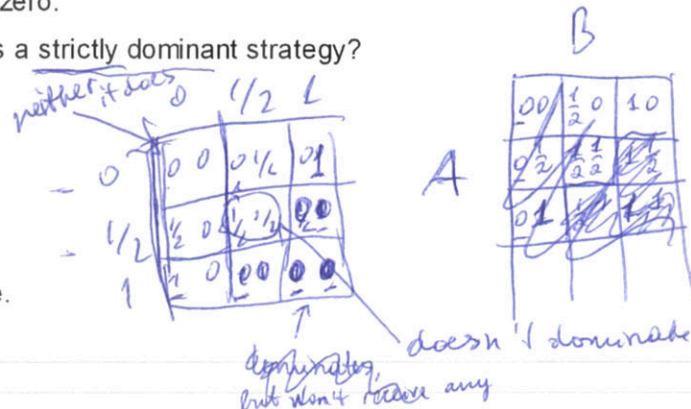 zero.
s a strictly dominant strategy?
neither it does
0 1/2 1
0 0 0 0 1/2 0 1
1/2 1/2 0 1/2 1/2 0 0
1 1 0 0 0 0 0
B
A
0 0 1/2 0 1 0
0 1/2 1/2 1/2 1 1/2
0 1
e.
doesn't dominate
dominates,
but won't receive any